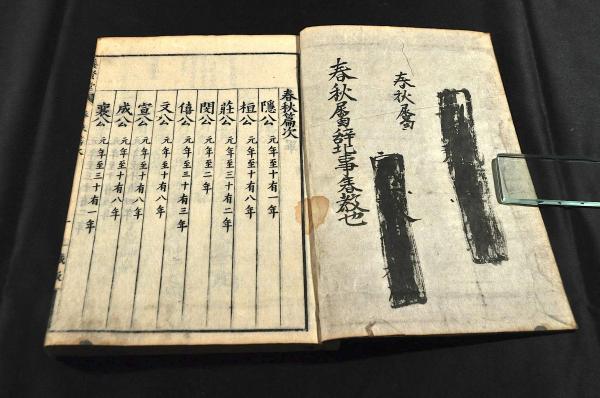 春秋屬
春秋屬辞比事春教也
春秋篇次
隱公 元年至十有一年
桓公 元年至十有八年
莊公 元年至三十有二年
閔公 元年至二年
僖公 元年至三十有三年
文公 元年至十有八年
宣公 元年至十有八年
成公 元年至十有八年
襄公 元年至三十有一年